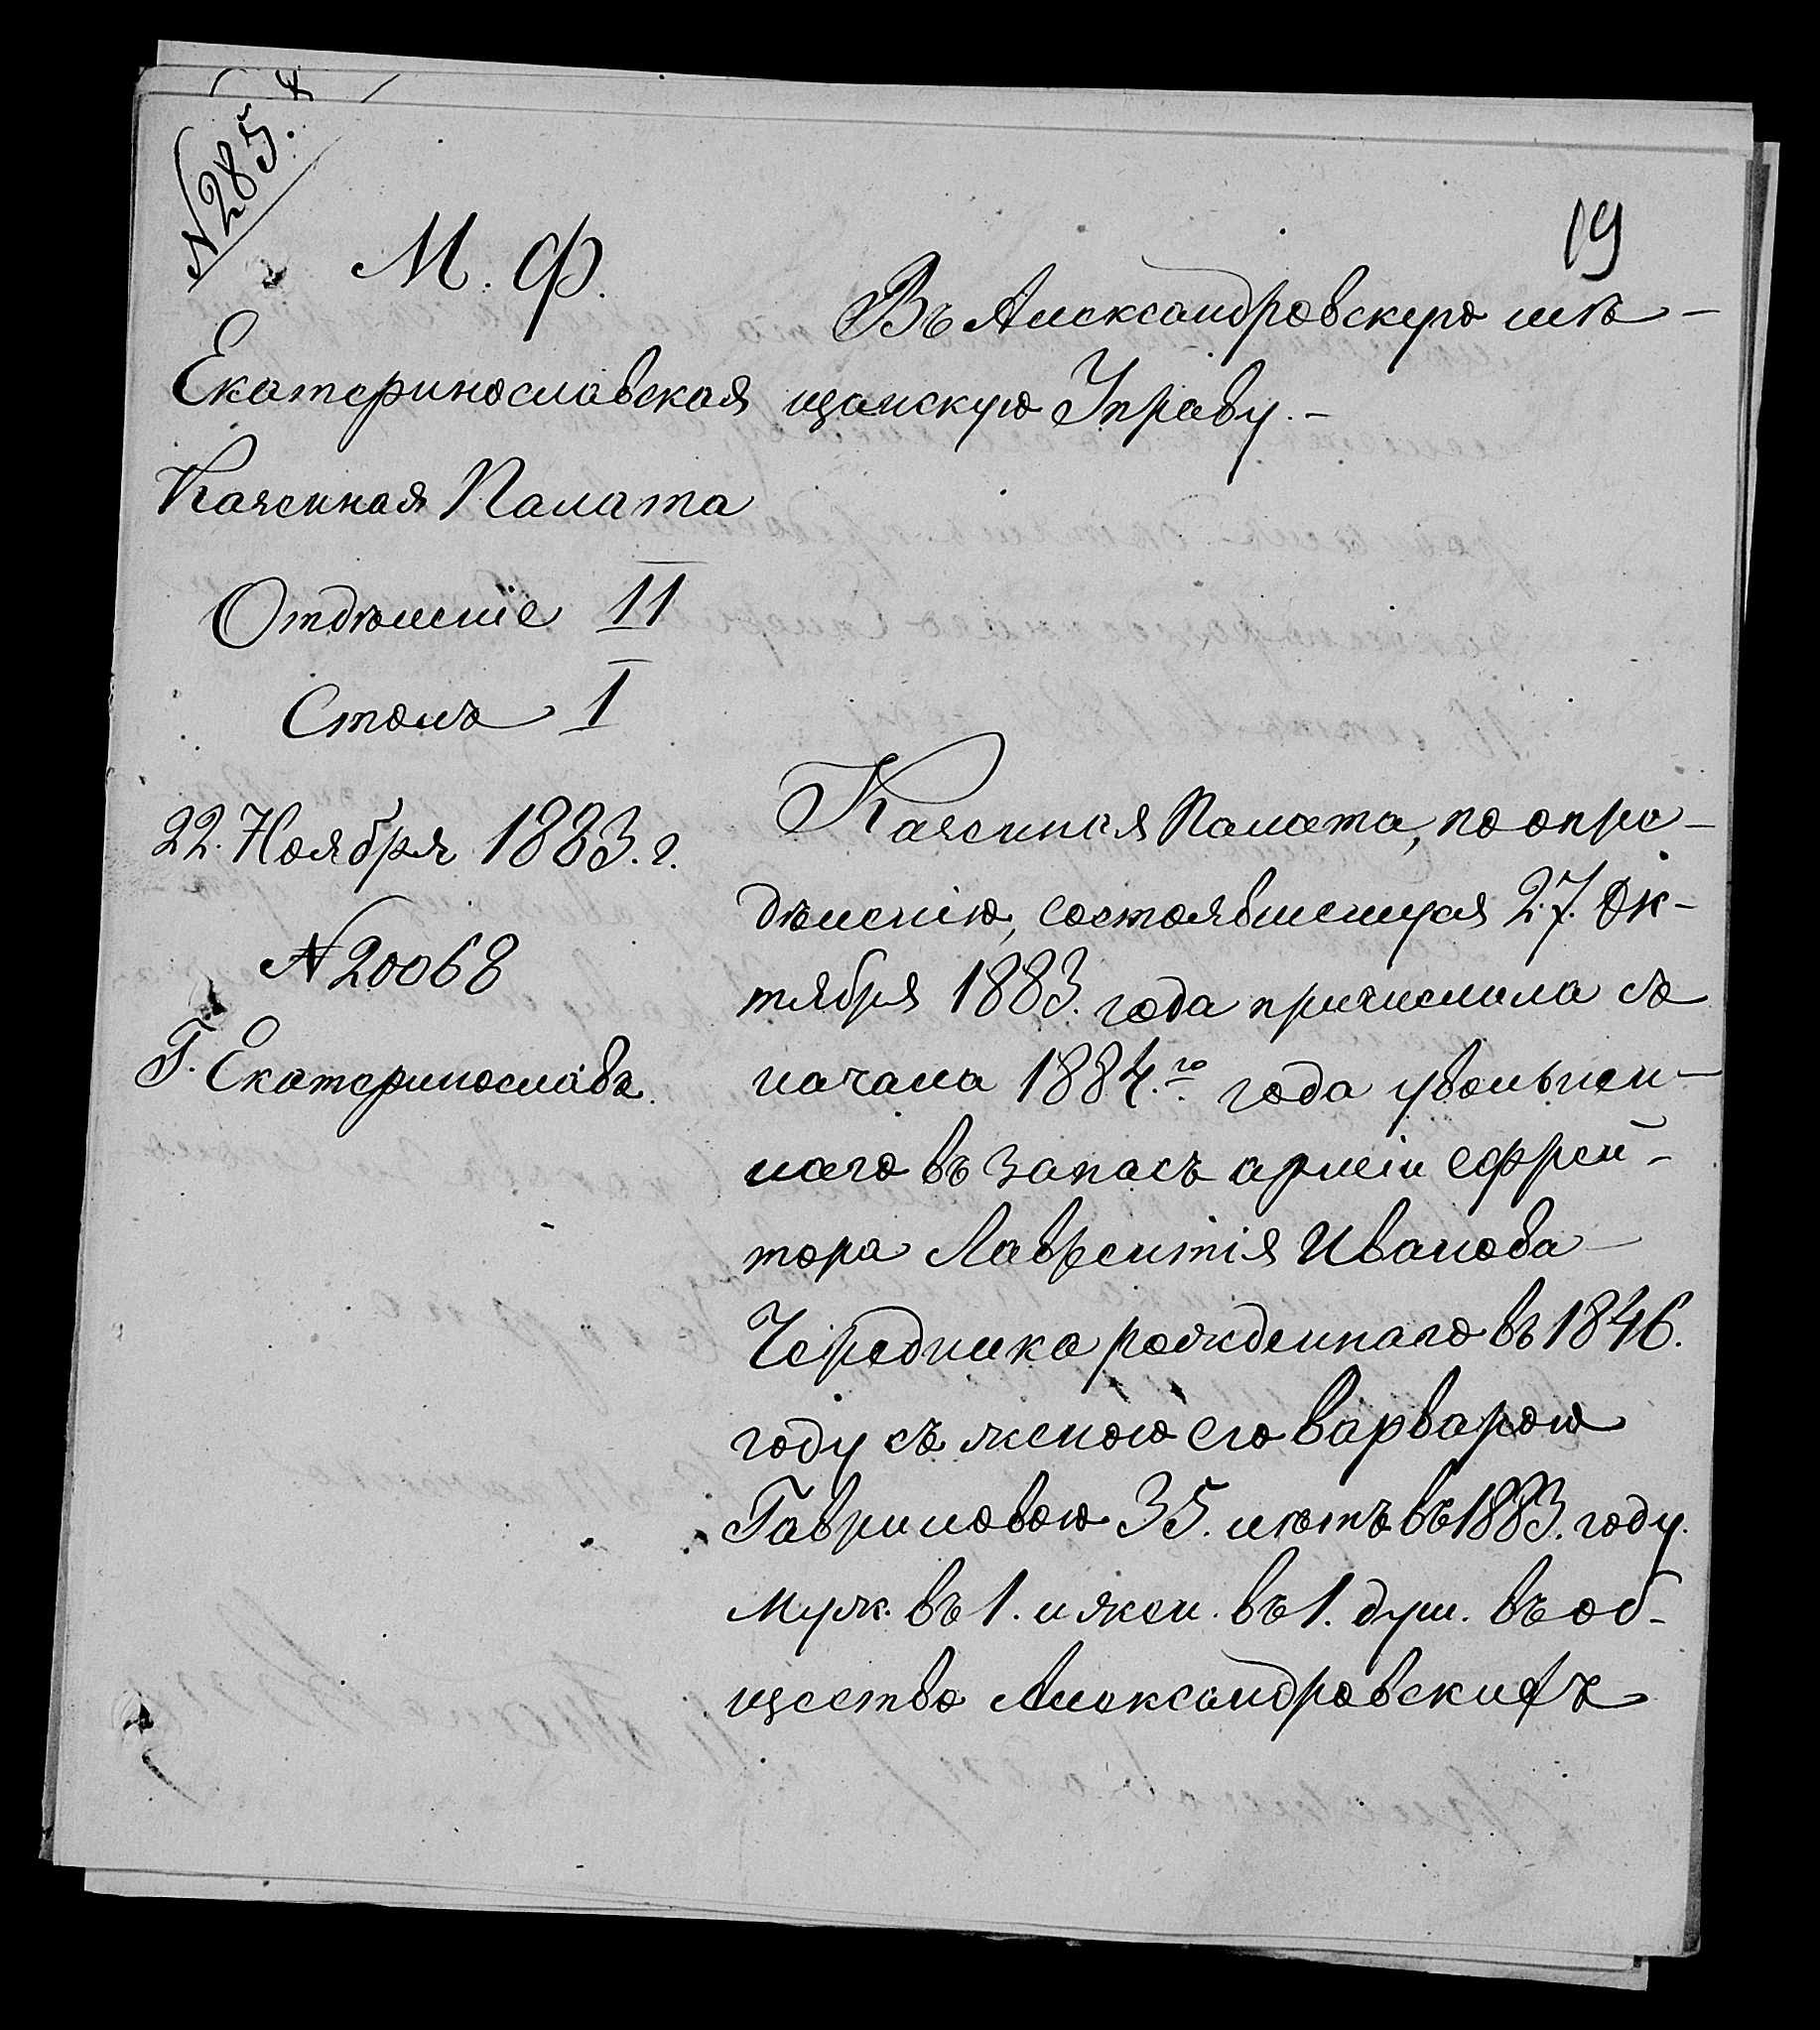 № 285.
19
М. Ф.
Екатеринославская
Казенная Палата
Отдѣленіе II
Столъ I
22. Ноября 1883. г.
№ 20068
Г. Екатеринославъ.
Въ Александровскую мѣ-
щанскую Управу. -
Казенная Палата, по опре-
дѣленію, состоявшемуся 27. Ок-
тября 1883. года причислила съ
начала 1884.го года уволнен-
наго въ запасъ арміи ефрей-
тора Лаврентія Иванова
Чередника рожденнаго въ 1846.
году съ женою его Варварою
Гавриловою 35. лѣтъ въ 1883. году.
муж. въ 1. и жен. въ 1. душ. въ об-
щество Александровскихъ